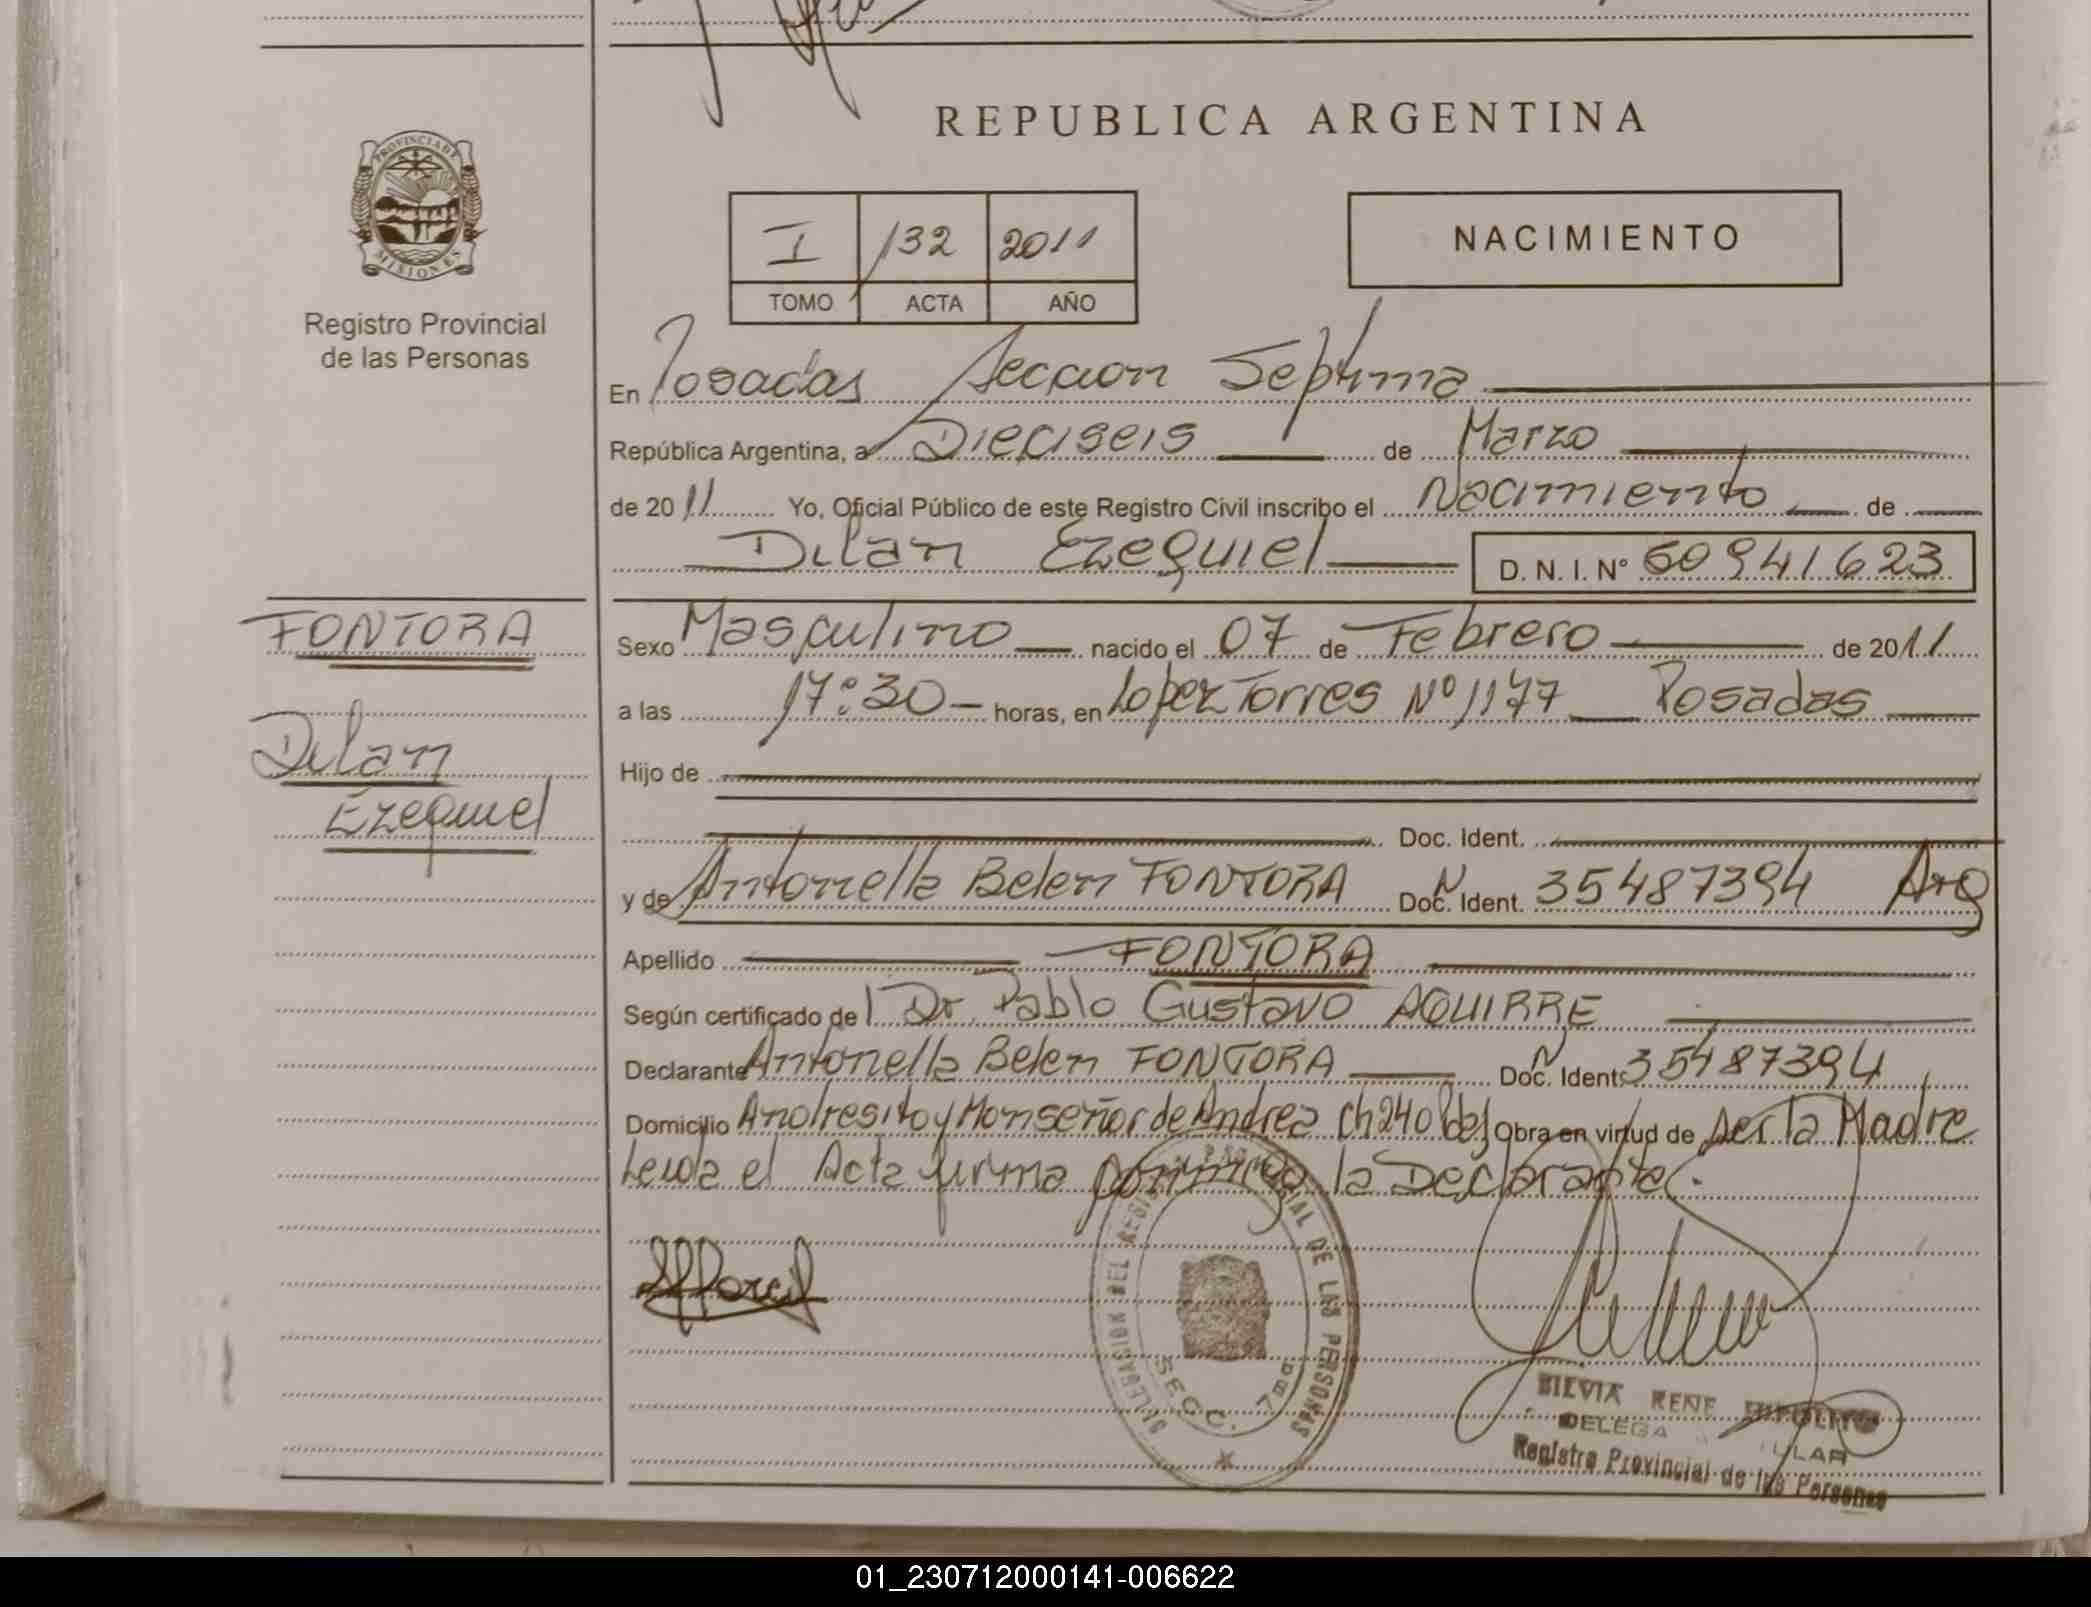 REPUBLICA ARGENTINA
PROVINCIA DE
MISIONES
Registro Provincial
de las Personas
I 132 2011
TOMO ACTA AÑO
NACIMIENTO
En Posadas Seccion Septima
República Argentina, a Dieciseis de Marzo
de 2011 Yo, Oficial Público de este Registro Civil inscribo el Nacimiento de
Dilan Ezequiel D. N. I. N° 50941623
FONTORA
Dilan
Ezequiel
Sexo Masculino nacido el 07 de Febrero de 2011
a las 17:30 horas, en Lopez Torres Nº 1177 Posadas
Hijo de
Doc. Ident.
y de Antonella Belen FONTORA Doc. N Ident. 35487394 Arg
Apellido FONTORA
Según certificado del Dr. Pablo Gustavo AQUIRRE
Declarante Antonella Belen FONTORA Doc. N Ident. 35487394
Domicilio Andresito y Monseñor de Andrea Ch 240 Pdas Obra en virtud de Ser la Madre
Leida el Acta firma conmigo la Declarante.
DELEGACION DEL REGISTRO PROVINCIAL DE LAS PERSONAS
SECC. 7ma
SILVIA RENE
DELEGA ULAR
Registro Provincial de las Personas
01_230712000141-006622